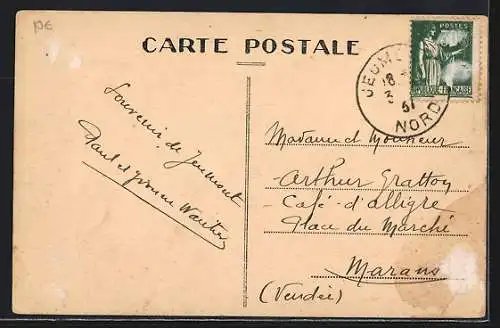 DE
CARTE POSTALE
POSTES
REPUBLIQUE FRANÇAISE
JEUMONT
18
3
37
NORD
Souvenir de Jeumont
Paul et Yvonne
Madame et Monsieur
Arthur Gratton
Café d'alligre
Place du Marché
Marans
(Vendée)